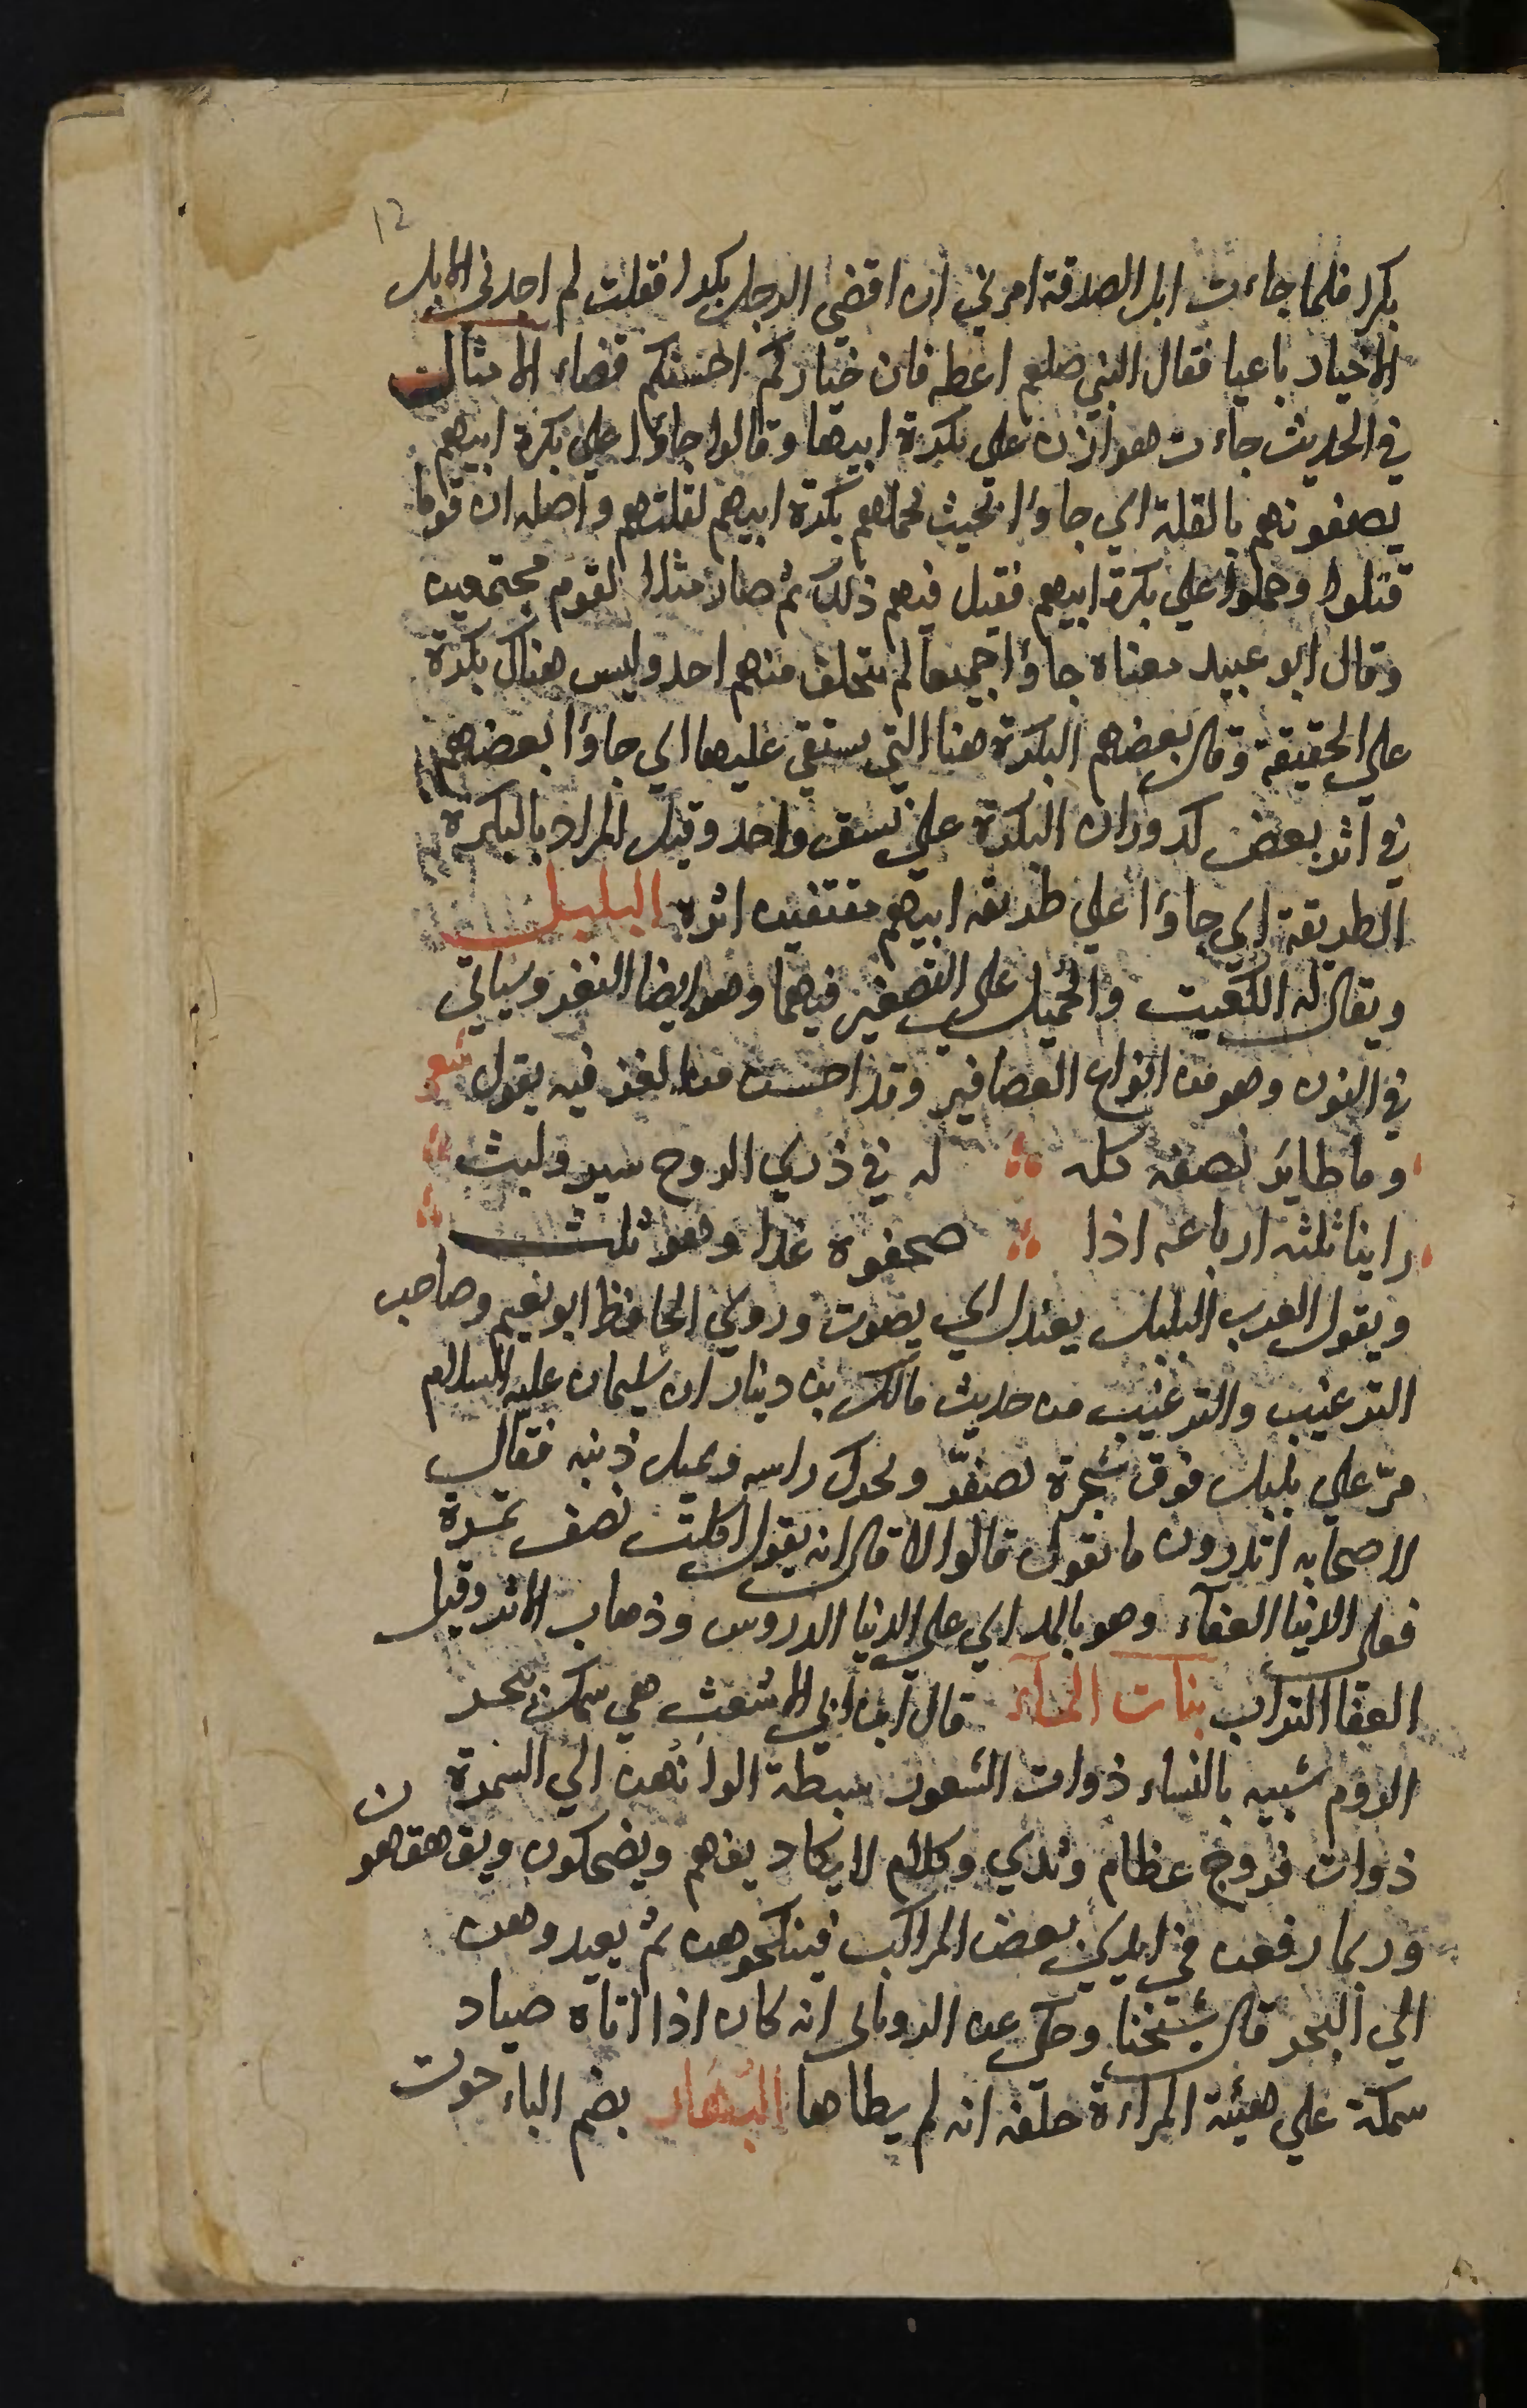 12
بكرا فلما جاءت ابل الصدقة امرني ان اقضي الرجل بكرا فقلت لم اجد في الابل
الاخيار باعيا فقال النبي صلعم اعطه فان خياركم احسنكم قضاء الامثال
في الحديث جاءت هوازن على بكرة ابيها وقالوا جاؤا على بكرة ابيهم
يصفونهم بالقلة اي جاؤا بحيث تحملهم بكرة ابيهم لقلتهم واصله ان قوما
قتلوا وحملوا علي بكرة ابيهم فقيل فيهم ذلك ثم صار مثلا لقوم مجتمعين
وقال ابو عبيد معناه جاؤا جميعا لم يتخلف منهم احد وليس هناك بكرة
علي الحقيقة وقال بعضهم البكرة هنا التي يستقي عليها اي جاؤا بعضهم
في اثر بعض كدوران البكرة علي نسق واحد وقيل المراد بالبكرة
الطريقة اي جاؤا علي طريقه ابيهم مقتفين اثره البلبل
ويقال له الكعيت والجميل على التصغير فيهما وهو ايضا النغر وسياتي
في النون وهو من انواع العصافير وقد احسن من الغز فيه يقول شعر
وما طاير نصفه كله له في ذري الدوح سير ولبث
راينا ثلثه ارباعه اذا صحفوه غدا وهو ثلث
ويقول العرب البلبل يعندل اي يصوت وروي الحافظ ابو نعيم وصاحب
الترغيب والترغيب من حديث مالك بن دينار ان سليمان عليه السلام
مرّ علي بلبل فوق شجرة يصفّر ويحرك راسه ويميل ذنبه فقال
لاصحابه اتدرون ما يقول قالوا لا قال انه يقول اكلت نصف تمرة
فعلى الدنيا العفآء وهو بالمد اي علي الدنيا الدروس وذهاب الاثر وقيل
العفا التراب بنات المآء قال ابن ابي الاشعث هي سمك ببحر
الروم شبيه بالنساء ذوات الشعور سبطة الوانهن الي السمرة
ذوات فروج عظام وثدي وكلام لا يكاد يفهم ويضحكون ويقهقهون
وربما رفعن في ايدي بعض المراكب فينكحوهن ثم يعيدوهن
الي البحر قال شيخنا وحكى عن الروياني انه كان اذا اتاه صياد
سمكة علي هيئة المراءة حلفه انه لم يطاها البُهار بضم الباء حوت